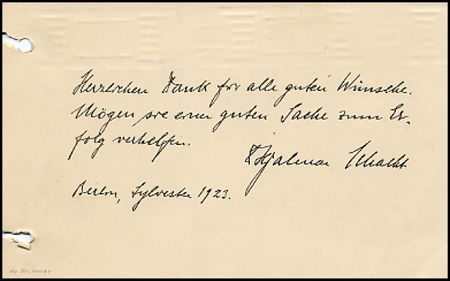 Herzlichen Dank für alle guten Wünsche.
Mögen sie einer guten Sache zum Er-
folg verhelfen.
Hjalmar Schacht
Berlin, Sylvester 1923.